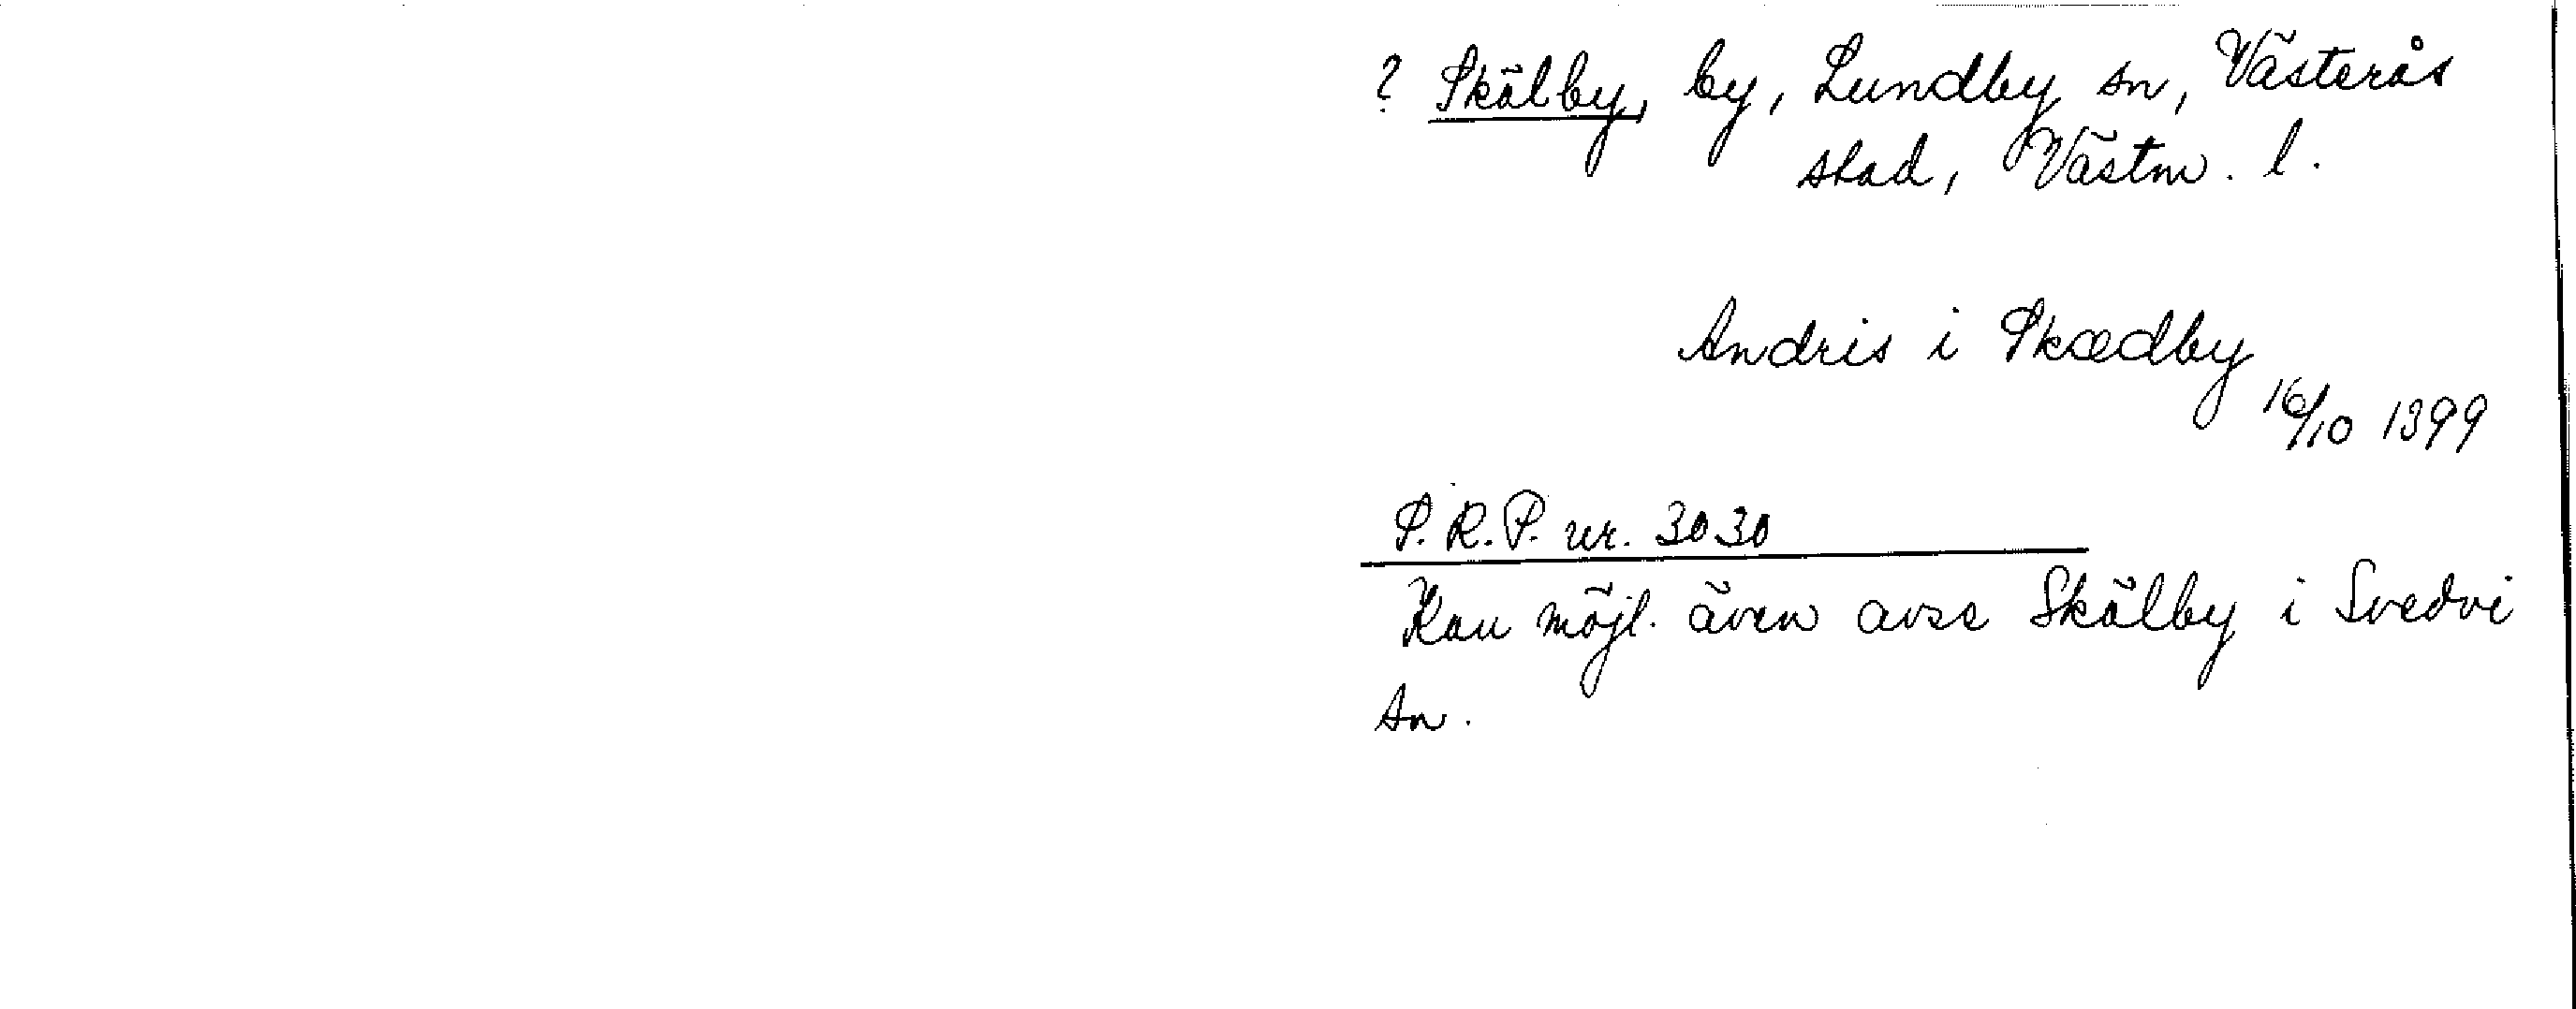 ? Skälby, by, Lundby sn, Västerås
stad, Västm. l.
Andris i Skædby
16/10 1399
S.R.P. nr. 3030
Kan möjl. även avse Skälby i Svedvi
sn.